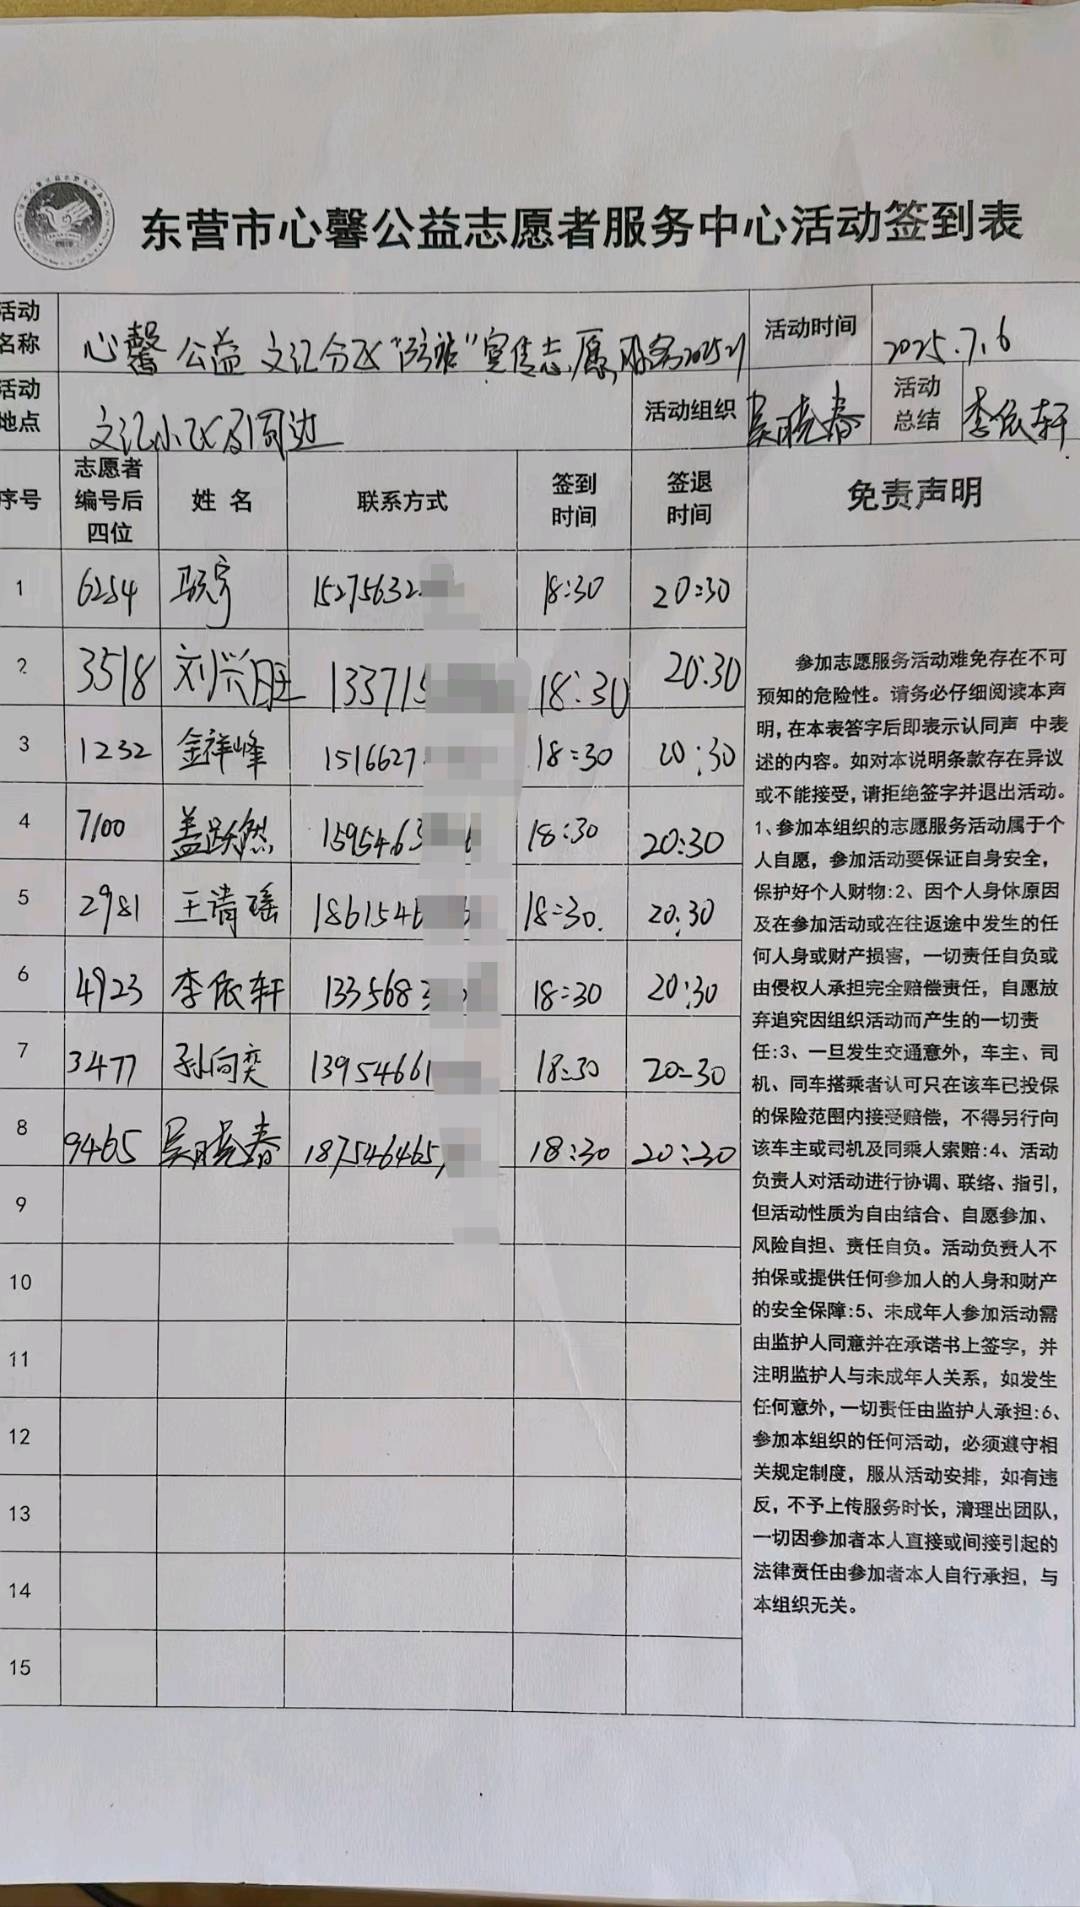 东营市心馨公益志愿者服务中心活动签到表
活动名称 心馨公益 文汇分队"防诈"宣传志愿服务 活动时间 2025.7.6
活动地点 文汇小区及周边 活动组织 吴晓春 活动总结 李依轩
序号 志愿者编号后四位 姓名 联系方式 签到时间 签退时间 免责声明
1 6254 15275632 18:30 20:30
2 3518 刘兴旺 133715 18:30 20:30
3 1232 金祥峰 1516627 18:30 20:30
4 7100 盖跃然 1595463 18:30 20:30
5 2981 王清瑶 1861546 18:30. 20:30
6 4923 李依轩 1335683 18:30 20:30
7 3477 孙向奕 13954661 18:30 20:30
8 9465 吴晓春 187546465 18:30 20:30
9
10
11
12
13
14
15
参加志愿服务活动难免存在不可
预知的危险性。请务必仔细阅读本声
明,在本表答字后即表示认同声 中表
述的内容。如对本说明条款存在异议
或不能接受,请拒绝签字并退出活动。
1、参加本组织的志愿服务活动属于个
人自愿，参加活动要保证自身安全，
保护好个人财物:2、因个人身体原因
及在参加活动或在往返途中发生的任
何人身或财产损害，一切责任自负或
由侵权人承担完全赔偿责任，自愿放
弃追究因组织活动而产生的一切责
任:3、一旦发生交通意外，车主、司
机、同车搭乘者认可只在该车已投保
的保险范围内接受赔偿，不得另行向
该车主或司机及同乘人索赔:4、活动
负责人对活动进行协调、联络、指引，
但活动性质为自由结合、自愿参加、
风险自担、责任自负。活动负责人不
拍保或提供任何参加人的人身和财产
的安全保障:5、未成年人参加活动需
由监护人同意并在承诺书上签字，并
注明监护人与未成年人关系，如发生
任何意外,一切责任由监护人承担:6、
参加本组织的任何活动，必须遵守相
关规定制度，服从活动安排，如有违
反，不予上传服务时长，清理出团队，
一切因参加者本人直接或间接引起的
法律责任由参加者本人自行承担，与
本组织无关。